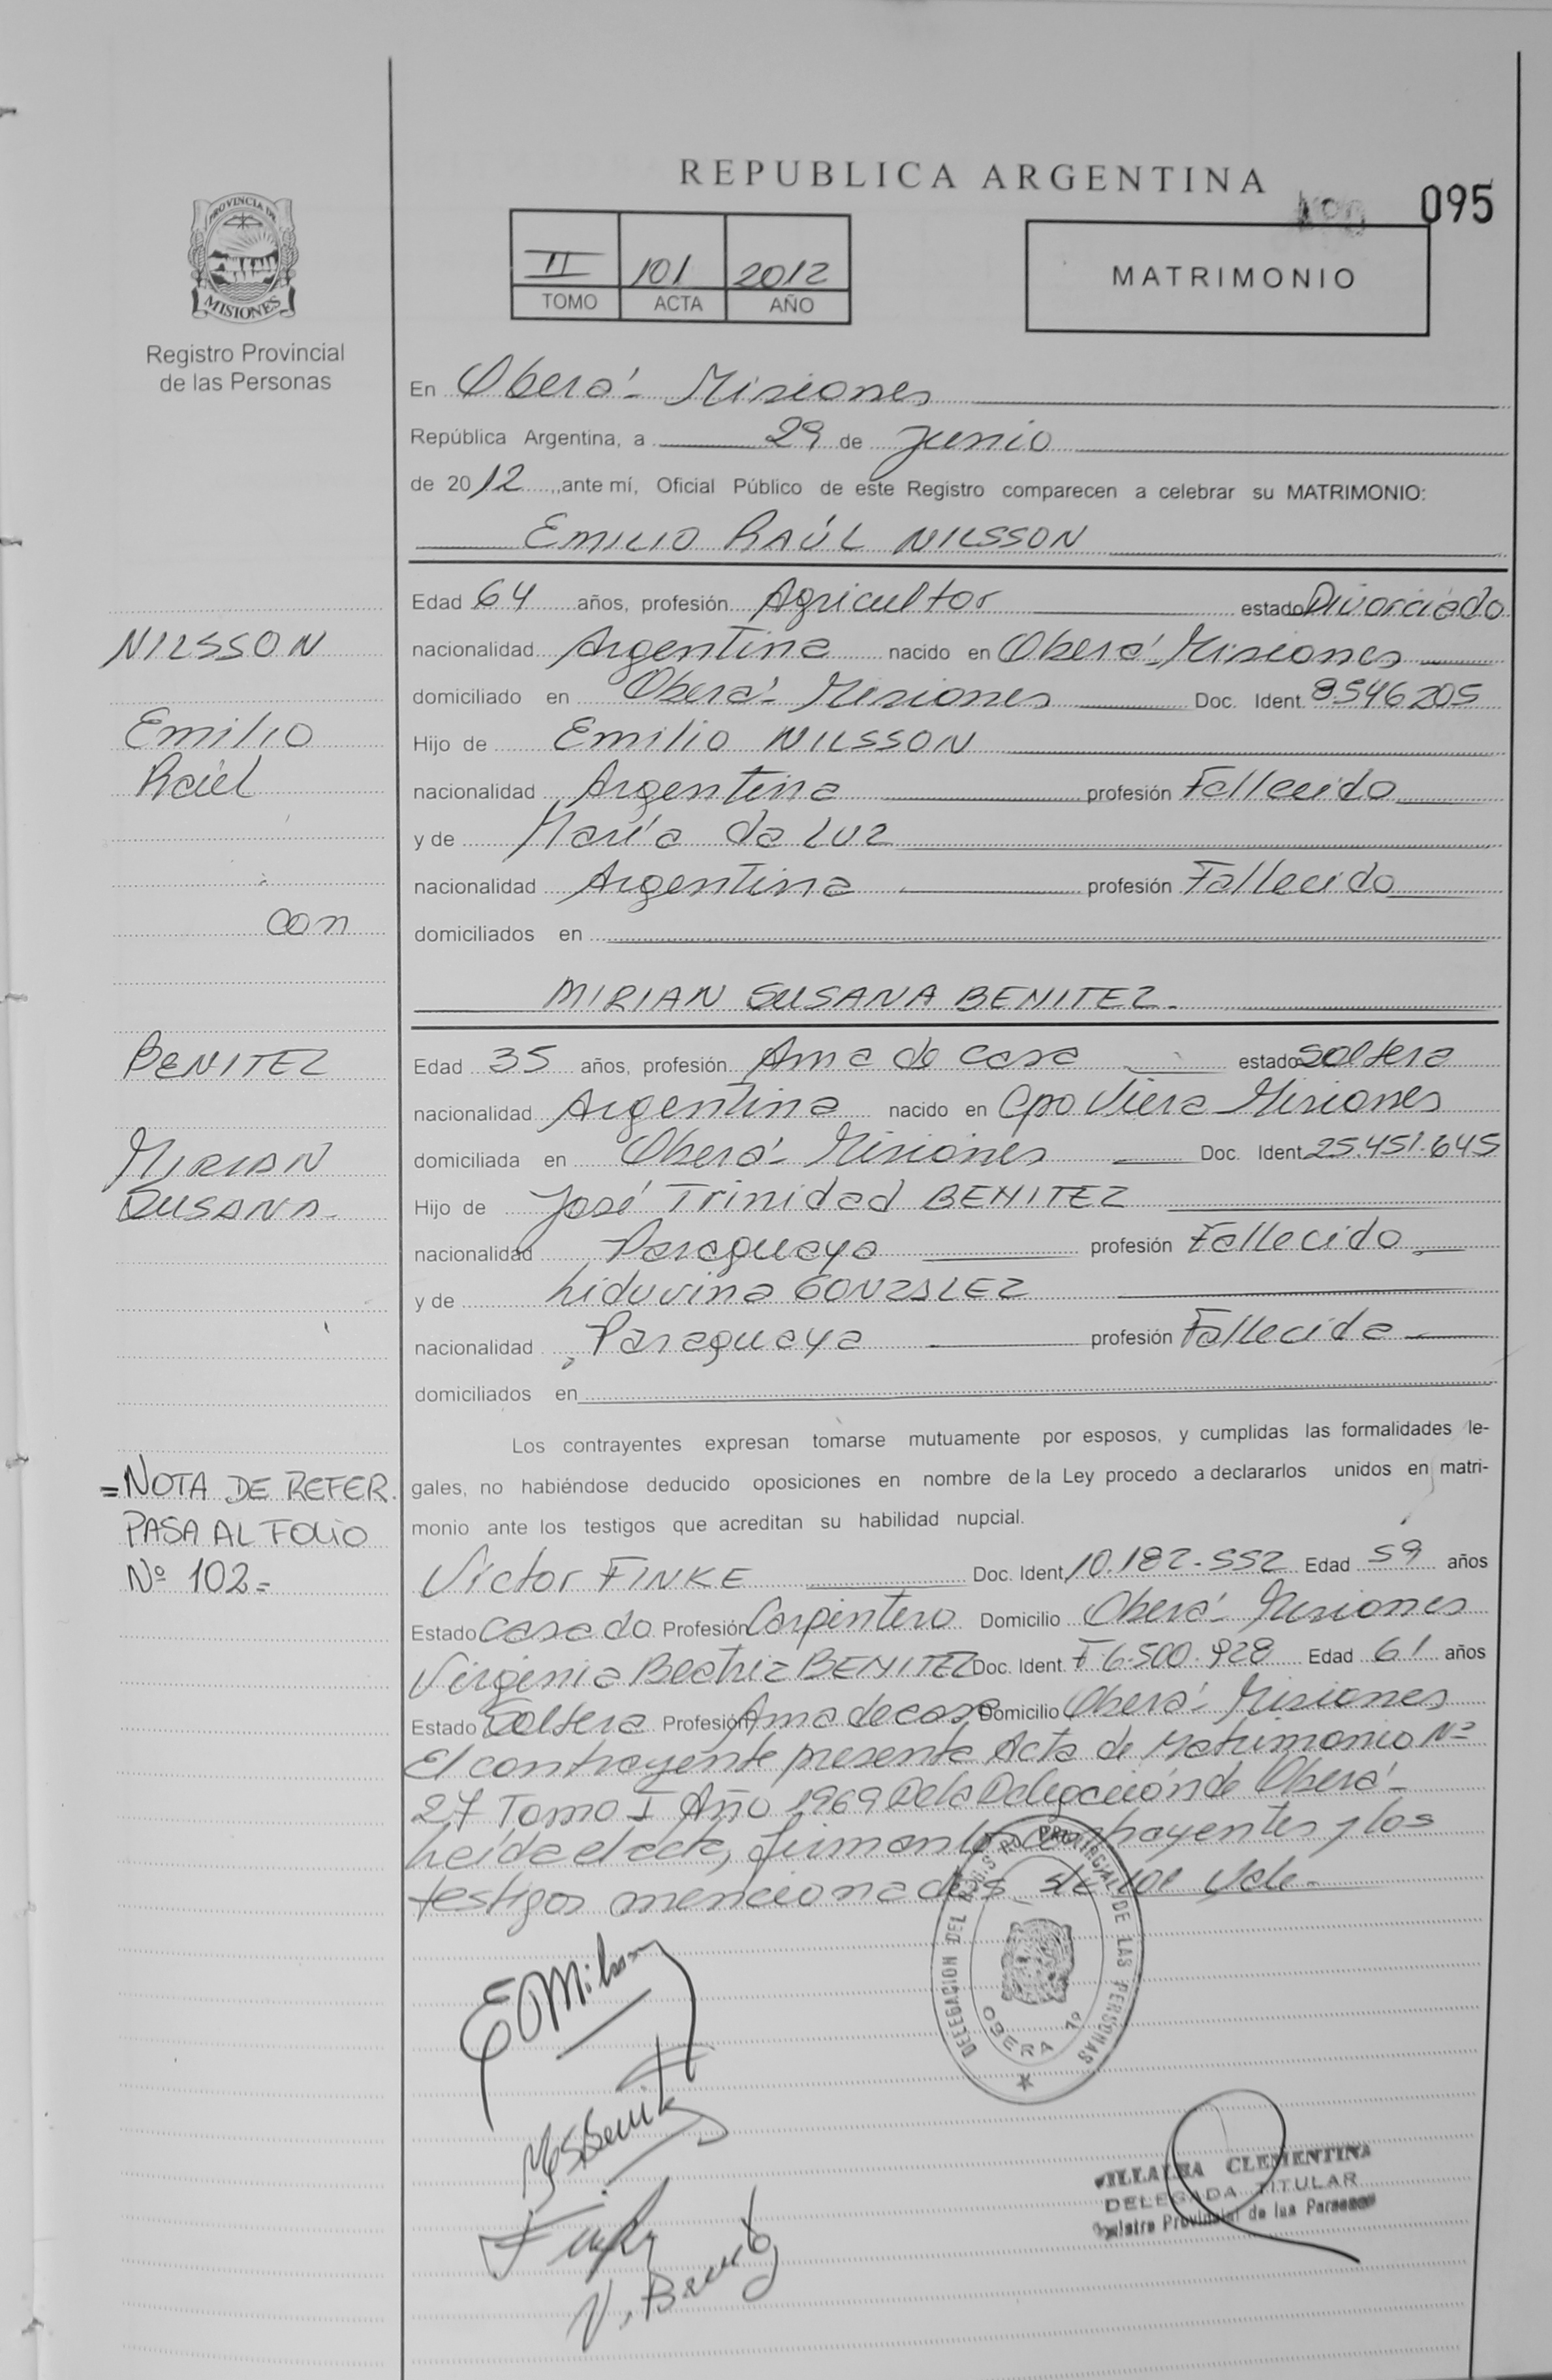 REPUBLICA ARGENTINA
095
PROVINCIA DE
MISIONES
Registro Provincial
de las Personas
II 101 2012
TOMO ACTA AÑO
MATRIMONIO
En Oberá - Misiones
República Argentina, a 29 de Junio
de 2012, ante mí, Oficial Público de este Registro comparecen a celebrar su MATRIMONIO:
EMILIO RAÚL NILSSON
Edad 64 años, profesión Agricultor estado Divorciado
NILSSON
nacionalidad Argentina nacido en Oberá - Misiones
domiciliado en Oberá - Misiones Doc. Ident. 8546205
Emilio
Hijo de Emilio NILSSON
Raúl
nacionalidad Argentina profesión Fallecido
y de María da LUZ
nacionalidad Argentina profesión Fallecido
con
domiciliados en
MIRIAN SUSANA BENITEZ.
BENITEZ
Edad 35 años, profesión Ama de casa estado Soltera
nacionalidad Argentina nacido en Cpo Viera Misiones
MIRIAN
domiciliada en Oberá - Misiones Doc. Ident 25.451.645
SUSANA-
Hijo de José Trinidad BENITEZ
nacionalidad Paraguaya profesión Fallecido
y de Liduvina GONZALEZ
nacionalidad Paraguaya profesión Fallecida
domiciliados en
Los contrayentes expresan tomarse mutuamente por esposos, y cumplidas las formalidades le-
gales, no habiéndose deducido oposiciones en nombre de la Ley procedo a declararlos unidos en matri-
monio ante los testigos que acreditan su habilidad nupcial.
=NOTA DE REFER.
PASA AL FOLIO
Nº 102=
Victor FINKE Doc. Ident 10.182.552 Edad 59 años
Estado Casado Profesión Carpintero Domicilio Oberá - Misiones
Virginia Beatriz BENITEZ Doc. Ident. F 6.500.928 Edad 61 años
Estado Soltera Profesión Ama de casa Domicilio Oberá - Misiones
El contrayente presenta Acta de Matrimonio Nº
27 Tomo I Año 1969 De la Delegación de Oberá -
Leída el acta, firman los contrayentes y los
testigos mencionados
DELEGACION DEL PROVINCIAL DE LAS PERSONAS
OBERA
V. Benitez
VILLALBA CLEMENTINA
DELEGADA TITULAR
Registro Provincial de las Personas